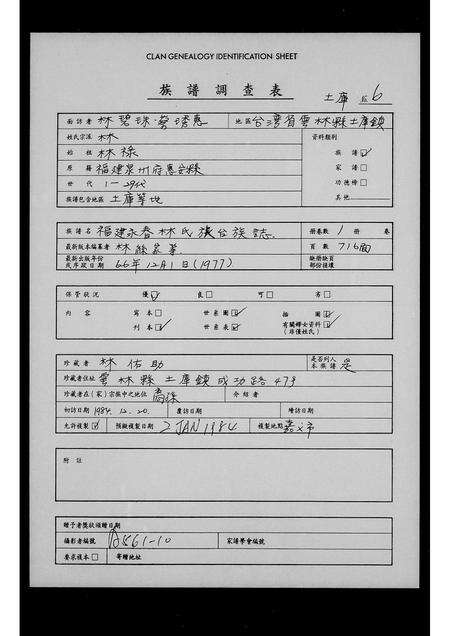 CLAN GENEALOGY IDENTIFICATION SHEET
族譜調查表
土庫 6
面訪者 林碧珠 蔡 惠 地區 台灣省雲林縣土庫鎮
姓氏宗派 林 資料類別
始祖 林祿 族譜☑
原籍 福建泉州府惠安縣 家譜□
世代 1-29代 功德榜□
族譜包含地區 土庫等地 其他
族譜名 福建永春林氏 台族誌 册卷數 1 册 卷
最新版本編纂者 林 等 頁數 716面
最新出版年份 缺册缺頁
或序跋日期 66年12月1日(1977) 部份損壞
保管狀況 優☑ 良□ 可□ 劣□
內容 寫本□ 世系圖☑ 插圖☑
刊本☑ 世系表☑ 有關婦女資料☑
(非僅姓氏)
珍藏者 林佑助 是否列入本族譜 是
珍藏者住址 雲林縣土庫鎮成功路473
珍藏者在(家)宗族中之地位 裔孫 介紹者
初訪日期 1984.12.20. 覆訪日期 增訪日期
允許複製☑ 預擬複製日期 2 JAN 1984 複製地點 嘉義市
附註
贈予者獎狀頒贈日期
攝影者編號 A861-10 家譜學會編號
要求複本□ 寄贈地址